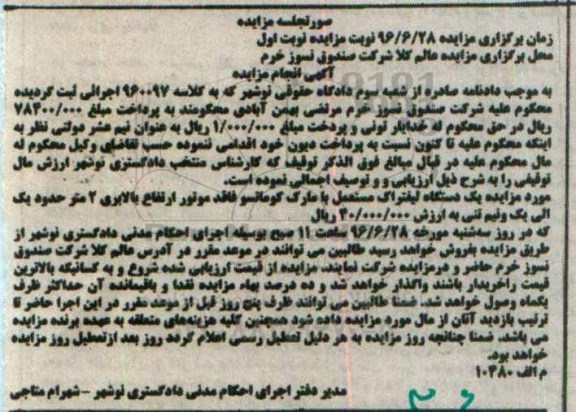 صورتجلسه مزایده
زمان برگزاری مزایده ۹۶/۶/۲۸ نوبت مزایده نوبت اول
محل برگزاری مزایده عالم کلا شرکت صندوق نسوز خرم
آگهی انجام مزایده
به موجب دادنامه صادره از شعبه سوم دادگاه حقوقی نوشهر که به کلاسه ۹۶۰۰۹۷ اجرائی ثبت گردیده
محکوم علیه شرکت صندوق نسوز خرم مرتضی بهمن آبادی محکومند به پرداخت مبلغ ۷۸۳۰۰/۰۰۰
ریال در حق محکوم له خدایار تولی و پردخت مبلغ ۱/۰۰۰/۰۰۰ ریال به عنوان نیم عشر دولتی نظر به
اینکه محکوم علیه تا کنون نسبت به پرداخت دیون خود اقدامی ننموده حسب تقاضای وکیل محکوم له
مال محکوم علیه در قبال مبالغ فوق الذکر توقیف که کارشناس منتخب دادگستری نوشهر ارزش مال
توقیفی را به شرح ذیل ارزیابی و و توصیف اجمالی نموده است.
مورد مزایده یک دستگاه لیفتراک مستعمل با مارک کوماتسو فاقد موتور ارتفاع بالابری ۲ متر حدود یک
الی یک ونیم تنی به ارزش ۴۰/۰۰۰/۰۰۰ ریال
که در روز سه‌شنبه مورخه ۹۶/۶/۲۸ ساعت ۱۱ صبح بوسیله اجرای احکام مدنی دادگستری نوشهر از
طریق مزایده بفروش خواهد رسید طالبین می توانند در موعد مقرر در آدرس عالم کلا شرکت صندوق
نسوز خرم حاضر و درمزایده شرکت نمایند. مزایده از قیمت ارزیابی شده شروع و به کسانیکه بالاترین
قیمت راخریدار باشند واگذار خواهد شد و ده درصد بهاء مزایده نقدا و باقیمانده آن حداکثر ظرف
یکماه وصول خواهد شد. ضمنا طالبین می توانند ظرف پنج روز قبل از موعد مقرر در این اجرا حاضر تا
ترتیب بازدید آنان از مال مورد مزایده داده شود همچنین کلیه هزینه‌های متعلقه به عهده برنده مزایده
می باشد. ضمنا چنانچه روز مزایده به هر دلیل تعطیل رسمی اعلام گردد روز بعد ازتعطیل روز مزایده
خواهد بود.
م الف ۱۰۴۸۰
مدیر دفتر اجرای احکام مدنی دادگستری نوشهر -شهرام متاجی